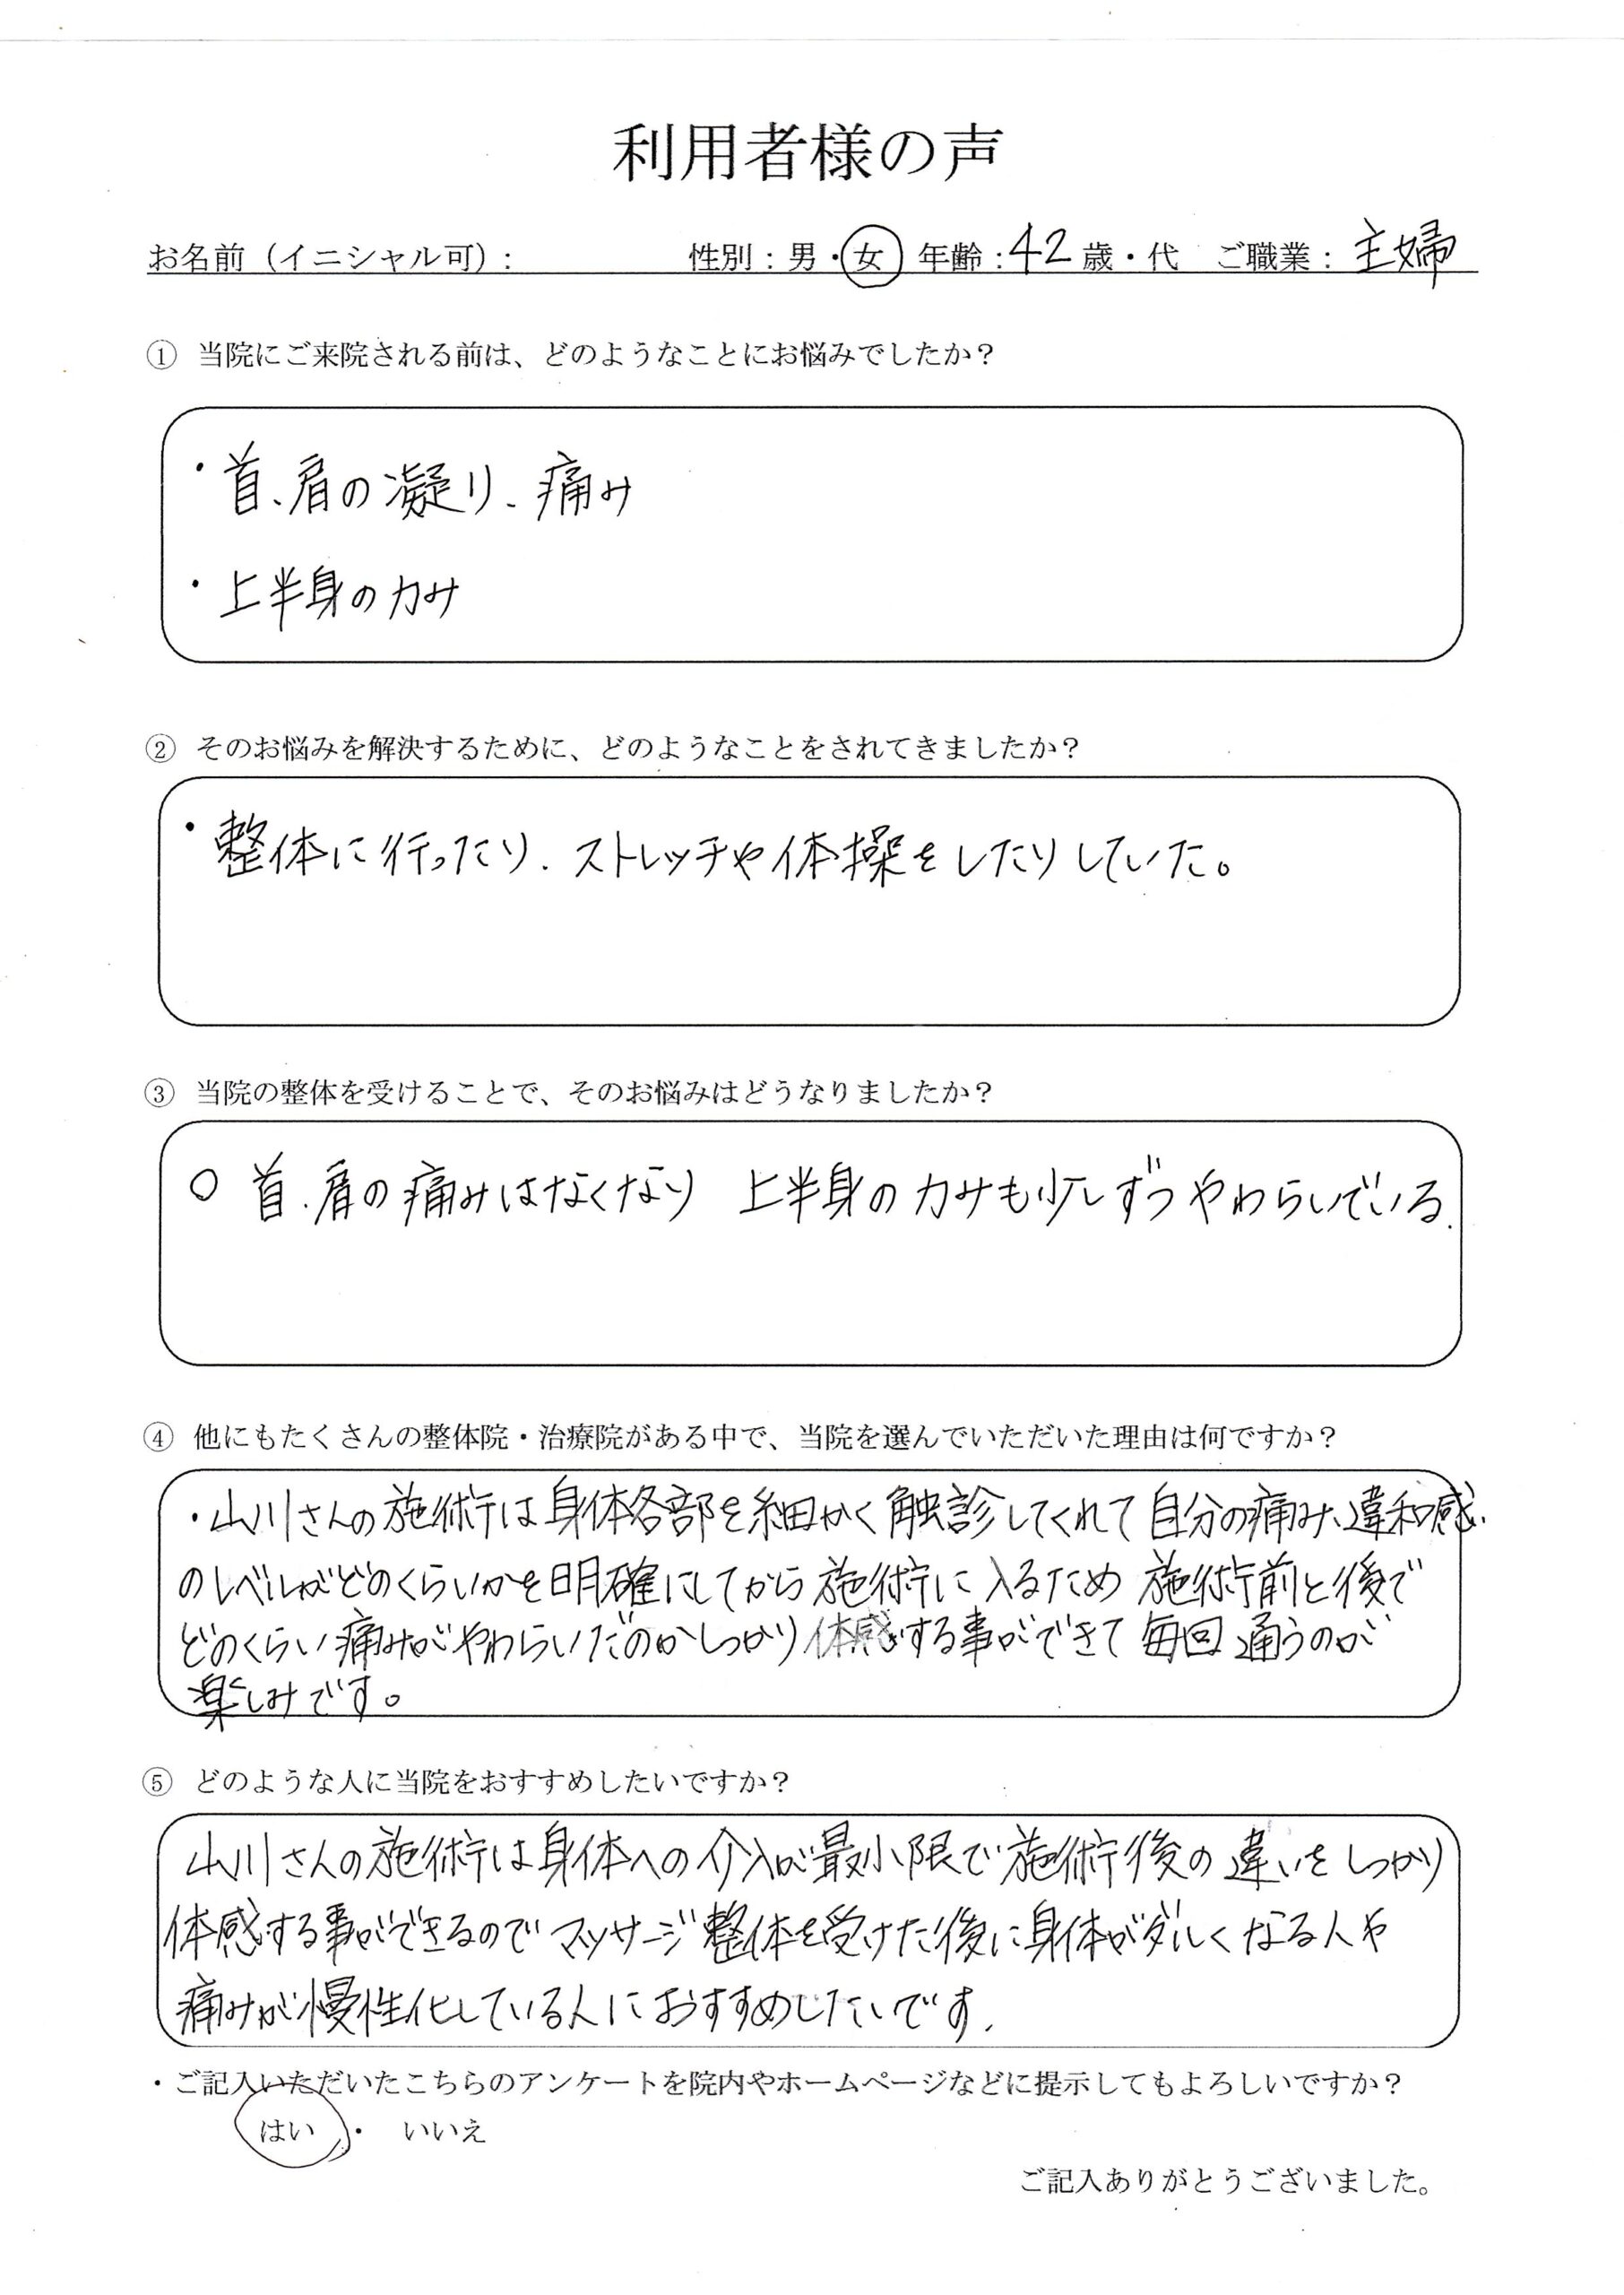 利用者様の声
お名前（イニシャル可）： 性別：男・女 年齢：42歳・代 ご職業：主婦
① 当院にご来院される前は、どのようなことにお悩みでしたか？
・首、肩の凝り、痛み
・上半身の力み
② そのお悩みを解決するために、どのようなことをされてきましたか？
・整体に行ったり、ストレッチや体操をしたりしていた。
③ 当院の整体を受けることで、そのお悩みはどうなりましたか？
○ 首、肩の痛みはなくなり 上半身の力みも少しずつやわらいでいる.
④ 他にもたくさんの整体院・治療院がある中で、当院を選んでいただいた理由は何ですか？
・山川さんの施術は身体各部を細かく触診してくれて自分の痛み、違和感
のレベルがどのくらいかを明確にしてから施術に入るため 施術前と後で
どのくらい痛みがやわらいだのかしっかり体感する事ができて毎回通うのが
楽しみです。
⑤ どのような人に当院をおすすめしたいですか？
山川さんの施術は身体への介入が最小限で施術後の違いをしっかり
体感する事ができるのでマッサージ整体を受けた後に身体がダルくなる人や
痛みが慢性化している人におすすめしたいです.
・ご記入いただいたこちらのアンケートを院内やホームページなどに提示してもよろしいですか？
はい ・ いいえ
ご記入ありがとうございました。